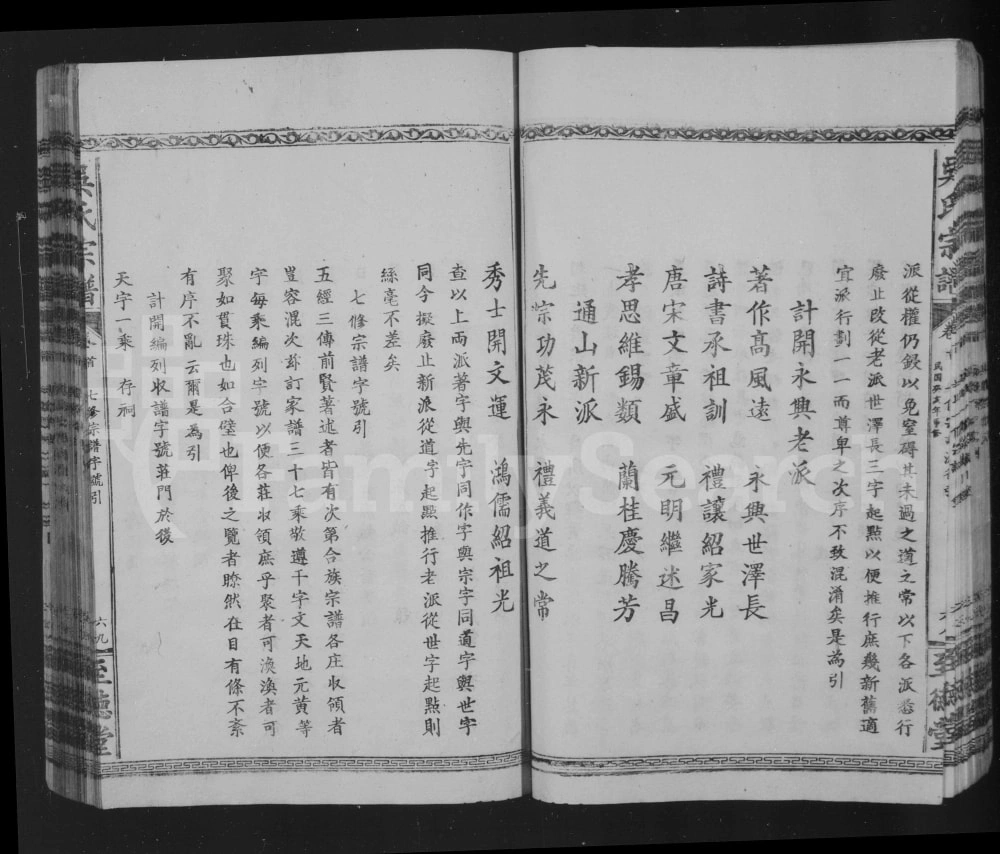 派從權仍錄以免窒碍其未過之道之常以下各派悉行
廢止改從老派世澤長三字起點以便推行庶幾新舊適
宜派行劃一一而尊卑之次序不致混淆矣是為引
計開永興老派
著作高風遠 永興世澤長
詩書承祖訓 禮讓紹家光
唐宋文章盛 元明繼述昌
孝思維錫類 蘭桂慶騰芳
通山新派
先宗功茂永 禮義道之常
秀士開文運 鴻儒紹祖光
查以上両派著字與先字同作字與宗字同道字與世字
同今擬廢止新派從道字起點推行老派從世字起點則
絲毫不差矣
七修宗譜字號引
五經三傳前賢著述者皆有次第合族宗譜各庄収領者
豈容混次玆訂家譜三十七乘敬遵千字文天地元黃等
字每乘編列字號以便各莊収領庶乎聚者可渙渙者可
聚如貫珠也如合璧也俾後之覽者瞭然在目有條不紊
有序不亂云爾是為引
計開編列収譜字號莊門於後
天字一乘 存祠
吳氏宗譜
卷首
七修宗譜字號引
六九
至德堂
FamilySearch